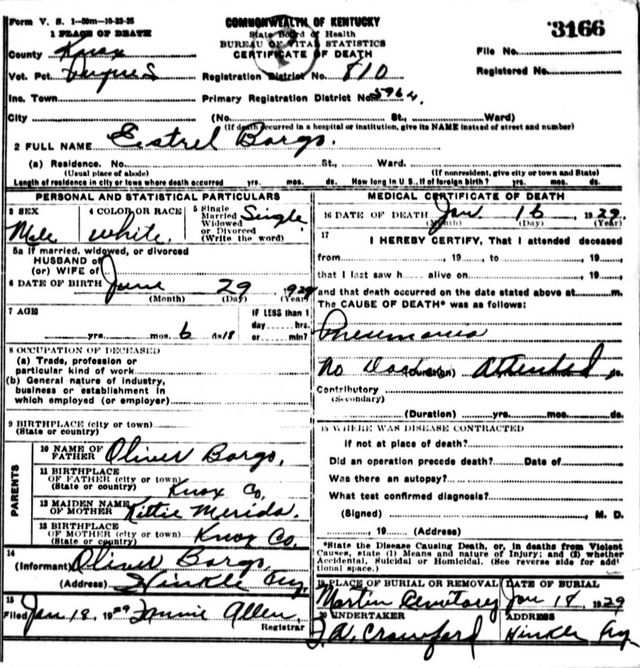 Form V. S. 1—50m—10-23-25
COMMONWEALTH OF KENTUCKY
3166
1 PLACE OF DEATH
State Board of Health
BUREAU OF VITAL STATISTICS
CERTIFICATE OF DEATH
County Knox
File No.
Vot. Pct.
Registration District No. 810
Registered No.
Inc. Town
Primary Registration District No. 5962
City (No. St., Ward)
(If death occurred in a hospital or institution, give its NAME instead of street and number)
2 FULL NAME Estrel Bargo.
(a) Residence. No. St., Ward.
(Usual place of abode) (If nonresident, give city or town and State)
Length of residence in city or town where death occurred yrs. mos. ds. How long in U. S., if of foreign birth? yrs. mos. ds.
PERSONAL AND STATISTICAL PARTICULARS
3 SEX 4 COLOR OR RACE 5 Single Married Widowed or Divorced (Write the word)
Male white Single
5a If married, widowed, or divorced
HUSBAND OF
(or) WIFE OF
6 DATE OF BIRTH June 29
(Month) (Day) (Year)
7 AGE IF LESS than 1
day hrs.
yrs. mos. 6 ds. 18 or min?
8 OCCUPATION OF DECEASED
(a) Trade, profession or
particular kind of work
(b) General nature of industry,
business or establishment in
which employed (or employer)
9 BIRTHPLACE (city or town)
(State or country)
PARENTS
10 NAME OF
FATHER Oliver Bargo,
11 BIRTHPLACE
OF FATHER (city or town)
(State or country) Knox Co,
12 MAIDEN NAME
OF MOTHER Kittie Merida.
13 BIRTHPLACE
OF MOTHER (city or town)
(State or country) Knox Co,
14
(Informant) Oliver Bargo,
(Address) Hinkle Ky
15
Filed Jan. 18, 1929 Allen,
Registrar
MEDICAL CERTIFICATE OF DEATH
16 DATE OF DEATH Jan 16 1929.
(Month) (Day) (Year)
17
I HEREBY CERTIFY, That I attended deceased
from , 19 , to , 19
that I last saw h alive on , 19
and that death occurred on the date stated above at m.
The CAUSE OF DEATH* was as follows:
Pneumonia
No Doctor Attended
(Duration) ds.
Contributory
(Secondary)
(Duration) yrs. mos. ds.
18 WHERE WAS DISEASE CONTRACTED
if not at place of death?
Did an operation precede death? Date of
Was there an autopsy?
What test confirmed diagnosis?
(Signed) , M. D.
, 19 (Address)
*State the Disease Causing Death, or, in deaths from Violent
Causes, state (1) Means and nature of Injury; and (2) whether
Accidental, Suicidal or Homicidal. (See reverse side for addi-
tional space.)
19 PLACE OF BURIAL OR REMOVAL DATE OF BURIAL
Martin Cemetary Jan 18 1929
20 UNDERTAKER ADDRESS
Crawford Hinkle Ky